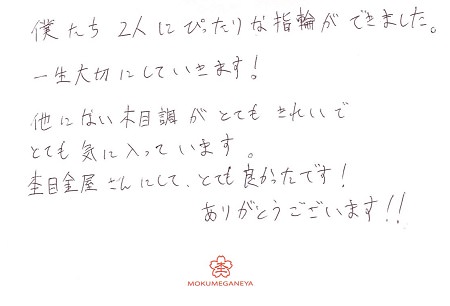 僕たち 2人にぴったりな指輪ができました。
一生大切にしていきます!
他にない木目調がとてもきれいで
とても気に入っています。
杢目金屋さんにして、とても良かったです!
ありがとうございます!!
杢
MOKUMEGANEYA